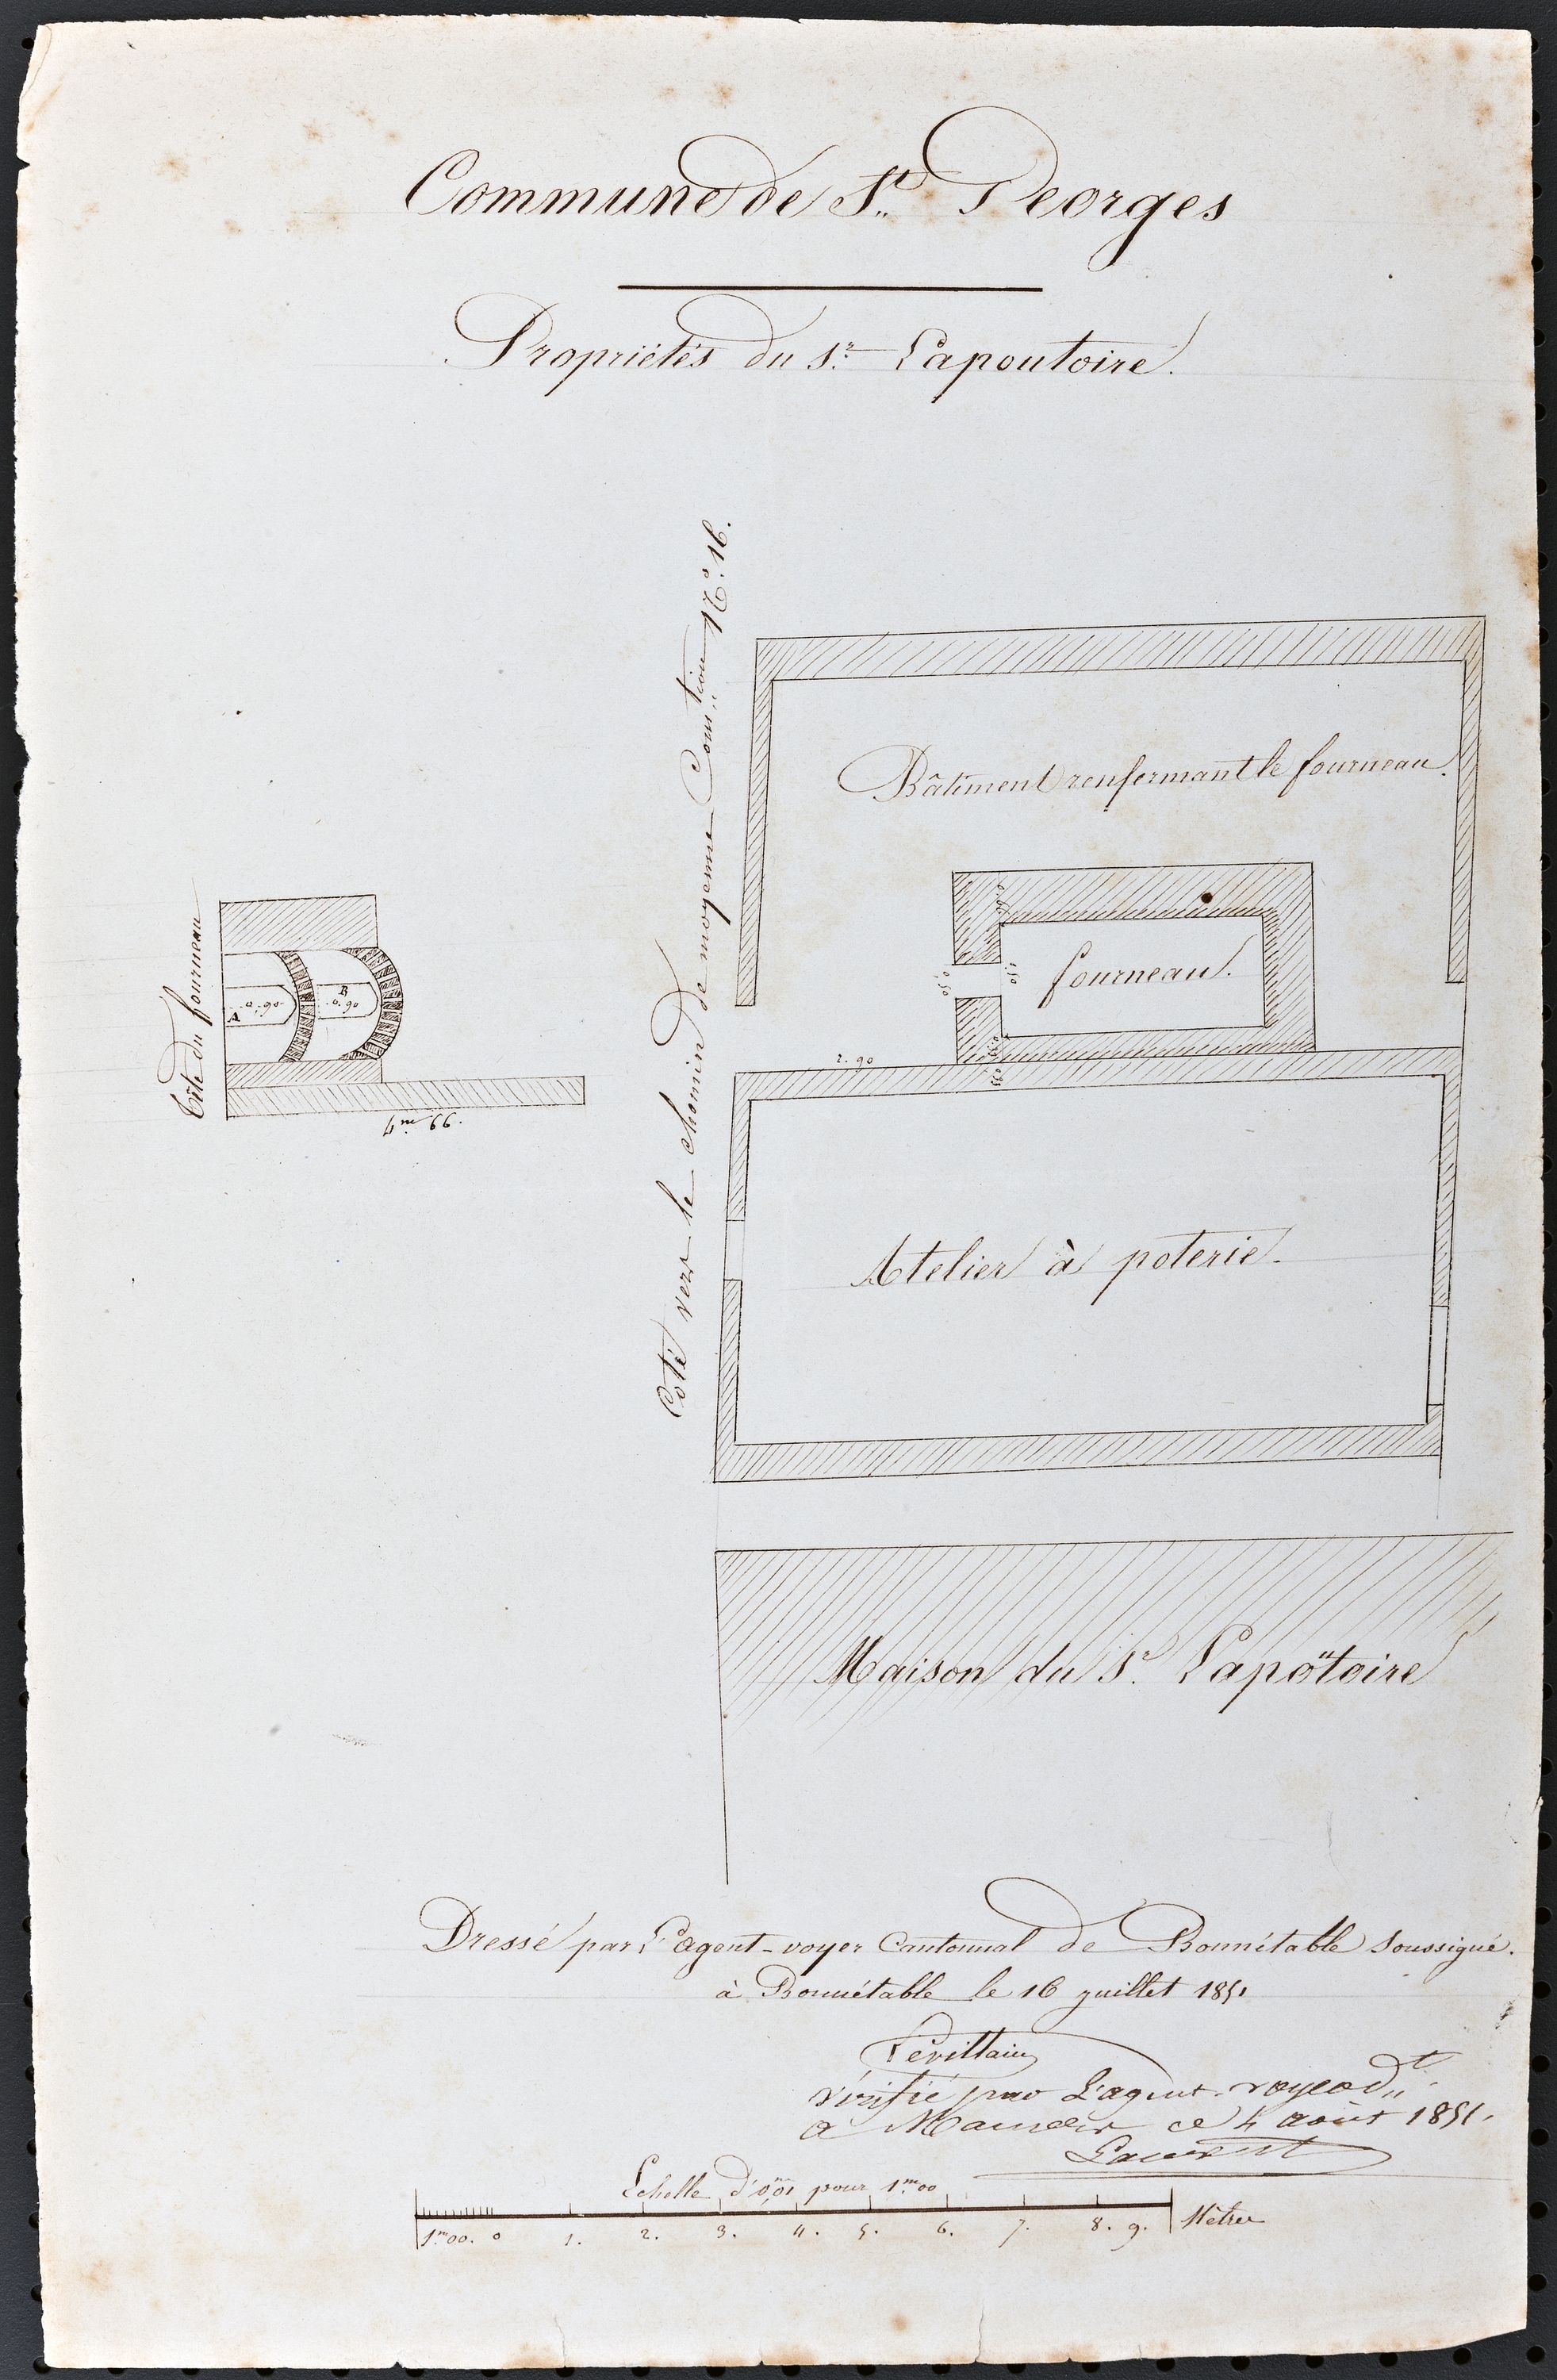 Commune de St. Georges
Propriétés du Sr. Lapoutoire.
Côté vers le chemin de moyenne Comm.tion N.° 16.
Bâtiment renfermant le fourneau.
fourneau.
0.90
2.90
Tête du fourneau
A 0.90
B 0.90
4m 66.
Atelier à poterie.
Maison du Sr. Lapoutoire
Dressé par l'agent-voyer Cantonnal de Bonnétable soussigné.
à Bonnétable le 16 juillet 1851
Levillain
Vérifié par L'agent-voyer d'..t
a Mamers ce 4 août 1851.
Echelle d'0m,01 pour 1m.00
1m.00. 0 1. 2. 3. 4. 5. 6. 7. 8. 9. Mètres